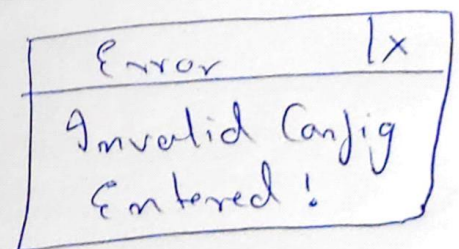 Error |x
Invalid Config
Entered!